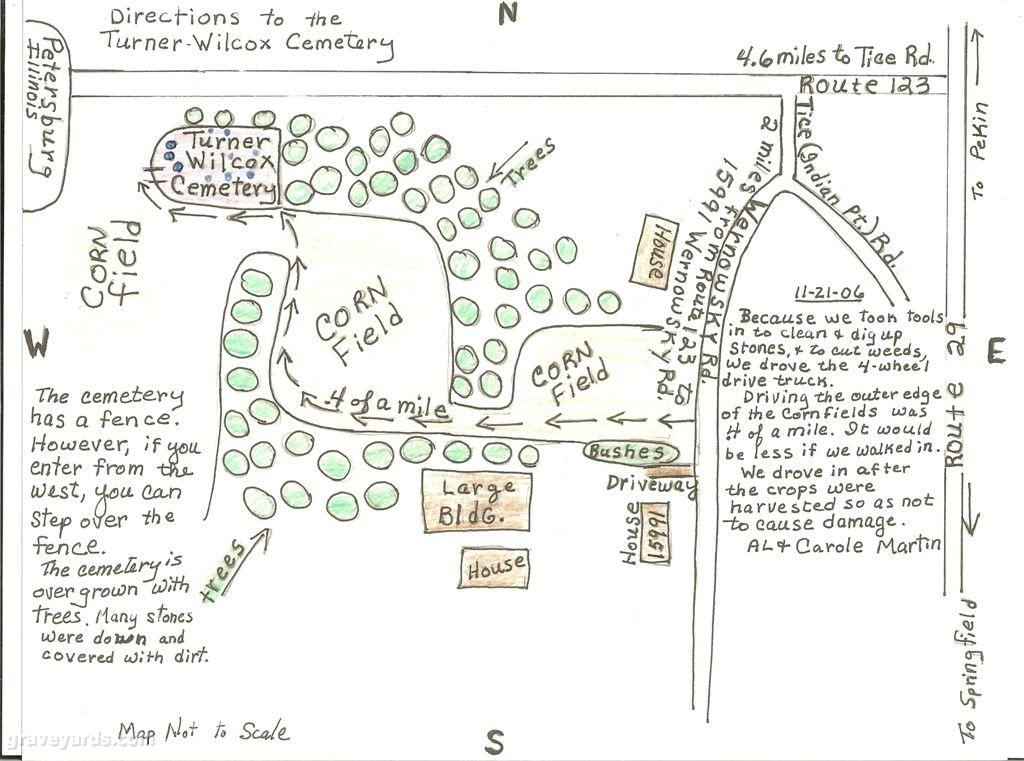 Directions to the
Turner-Wilcox Cemetery
N
4.6 miles to Tice Rd.
Route 123
Petersburg
Illinois
To Pekin
Tice (Indian Pt.) Rd.
2 miles from Route 123 to
15991 Wernowsky Rd.
Wernowsky Rd.
Turner
Wilcox
Cemetery
Trees
House
CORN
Field
CORN
Field
CORN
Field
.4 of a mile
W
E
Route 29
11-21-06
Because we took tools
in to clean & dig up
stones, & to cut weeds,
we drove the 4-wheel
drive truck.
Driving the outer edge
of the cornfields was
.4 of a mile. It would
be less if we walked in.
We drove in after
the crops were
harvested so as not
to cause damage.
AL & Carole Martin
The cemetery
has a fence.
However, if you
enter from the
west, you can
step over the
fence.
The cemetery is
over grown with
trees. Many stones
were down and
covered with dirt.
Bushes
Driveway
House
15991
Large
Bldg.
House
trees
To Springfield
Map Not to Scale
S
graveyards.com